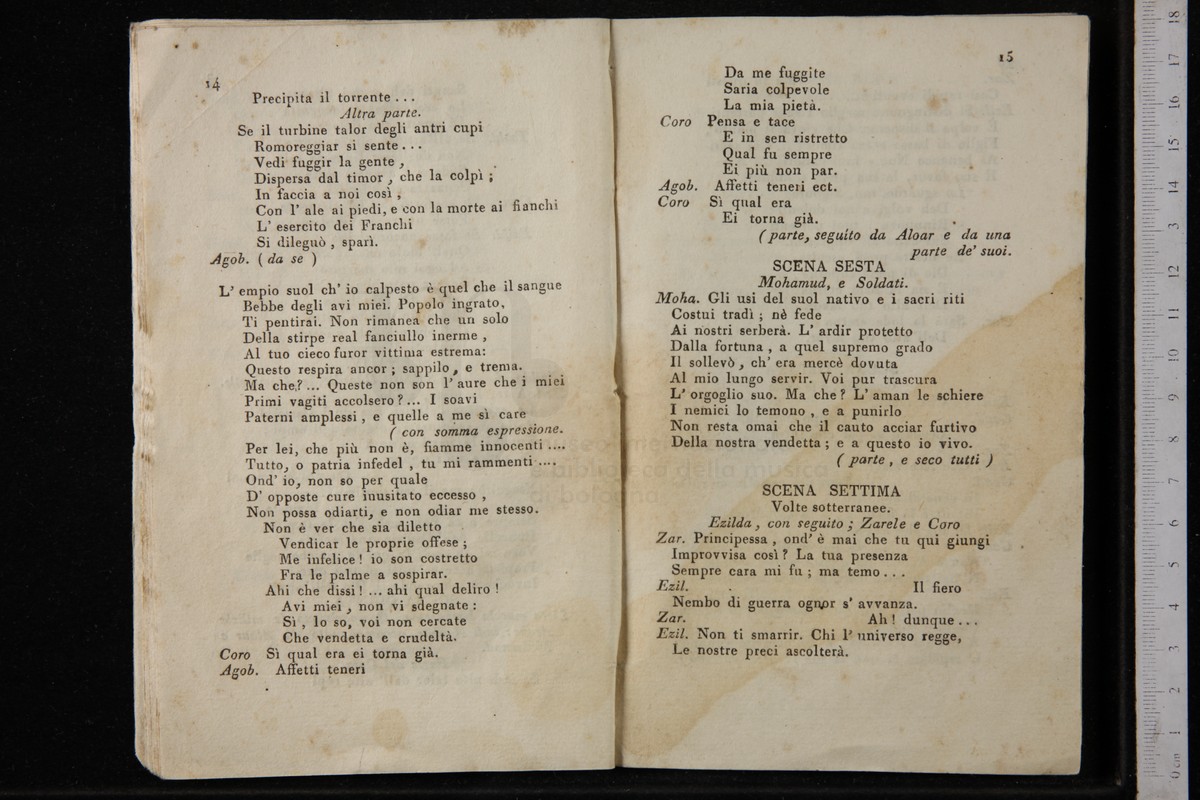 14
Precipita il torrente . . .
Altra parte.
Se il turbine talor degli antri cupi
Romoreggiar si sente . . .
Vedi fuggir la gente ,
Dispersa dal timor , che la colpì ;
In faccia a noi così ,
Con l' ale ai piedi, e con la morte ai fianchi
L' esercito dei Franchi
Si dileguò , sparì.
Agob. ( da se )
L' empio suol ch' io calpesto è quel che il sangue
Bebbe degli avi miei. Popolo ingrato,
Ti pentirai. Non rimanea che un solo
Della stirpe real fanciullo inerme ,
Al tuo cieco furor vittima estrema:
Questo respira ancor ; sappilo , e trema.
Ma che ? ... Queste non son l' aure che i miei
Primi vagiti accolsero ? ... I soavi
Paterni amplessi , e quelle a me sì care
( con somma espressione.
Per lei, che più non è, fiamme innocenti ....
Tutto, o patria infedel , tu mi rammenti ....
Ond' io, non so per quale
D' opposte cure inusitato eccesso ,
Non possa odiarti, e non odiar me stesso.
Non è ver che sia diletto
Vendicar le proprie offese ;
Me infelice ! io son costretto
Fra le palme a sospirar.
Ahi che dissi ! ... ahi qual deliro !
Avi miei , non vi sdegnate :
Sì , lo so, voi non cercate
Che vendetta e crudeltà.
Coro Sì qual era ei torna già.
Agob. Affetti teneri
15
Da me fuggite
Saria colpevole
La mia pietà.
Coro Pensa e tace
E in sen ristretto
Qual fu sempre
Ei più non par.
Agob. Affetti teneri ect.
Coro Sì qual era
Ei torna già.
(parte, seguito da Aloar e da una
parte de' suoi.
SCENA SESTA
Mohamud, e Soldati.
Moha. Gli usi del suol nativo e i sacri riti
Costui tradì ; nè fede
Ai nostri serberà. L' ardir protetto
Dalla fortuna , a quel supremo grado
Il sollevò , ch' era mercè dovuta
Al mio lungo servir. Voi pur trascura
L' orgoglio suo. Ma che ? L' aman le schiere
I nemici lo temono , e a punirlo
Non resta omai che il cauto acciar furtivo
Della nostra vendetta ; e a questo io vivo.
( parte , e seco tutti )
SCENA SETTIMA
Volte sotterranee.
Ezilda, con seguito ; Zarele e Coro
Zar. Principessa , ond' è mai che tu qui giungi
Improvvisa così ? La tua presenza
Sempre cara mi fu ; ma temo . . .
Ezil. Il fiero
Nembo di guerra ognor s' avvanza.
Zar. Ah ! dunque . . .
Ezil. Non ti smarrir. Chi l' universo regge,
Le nostre preci ascolterà.